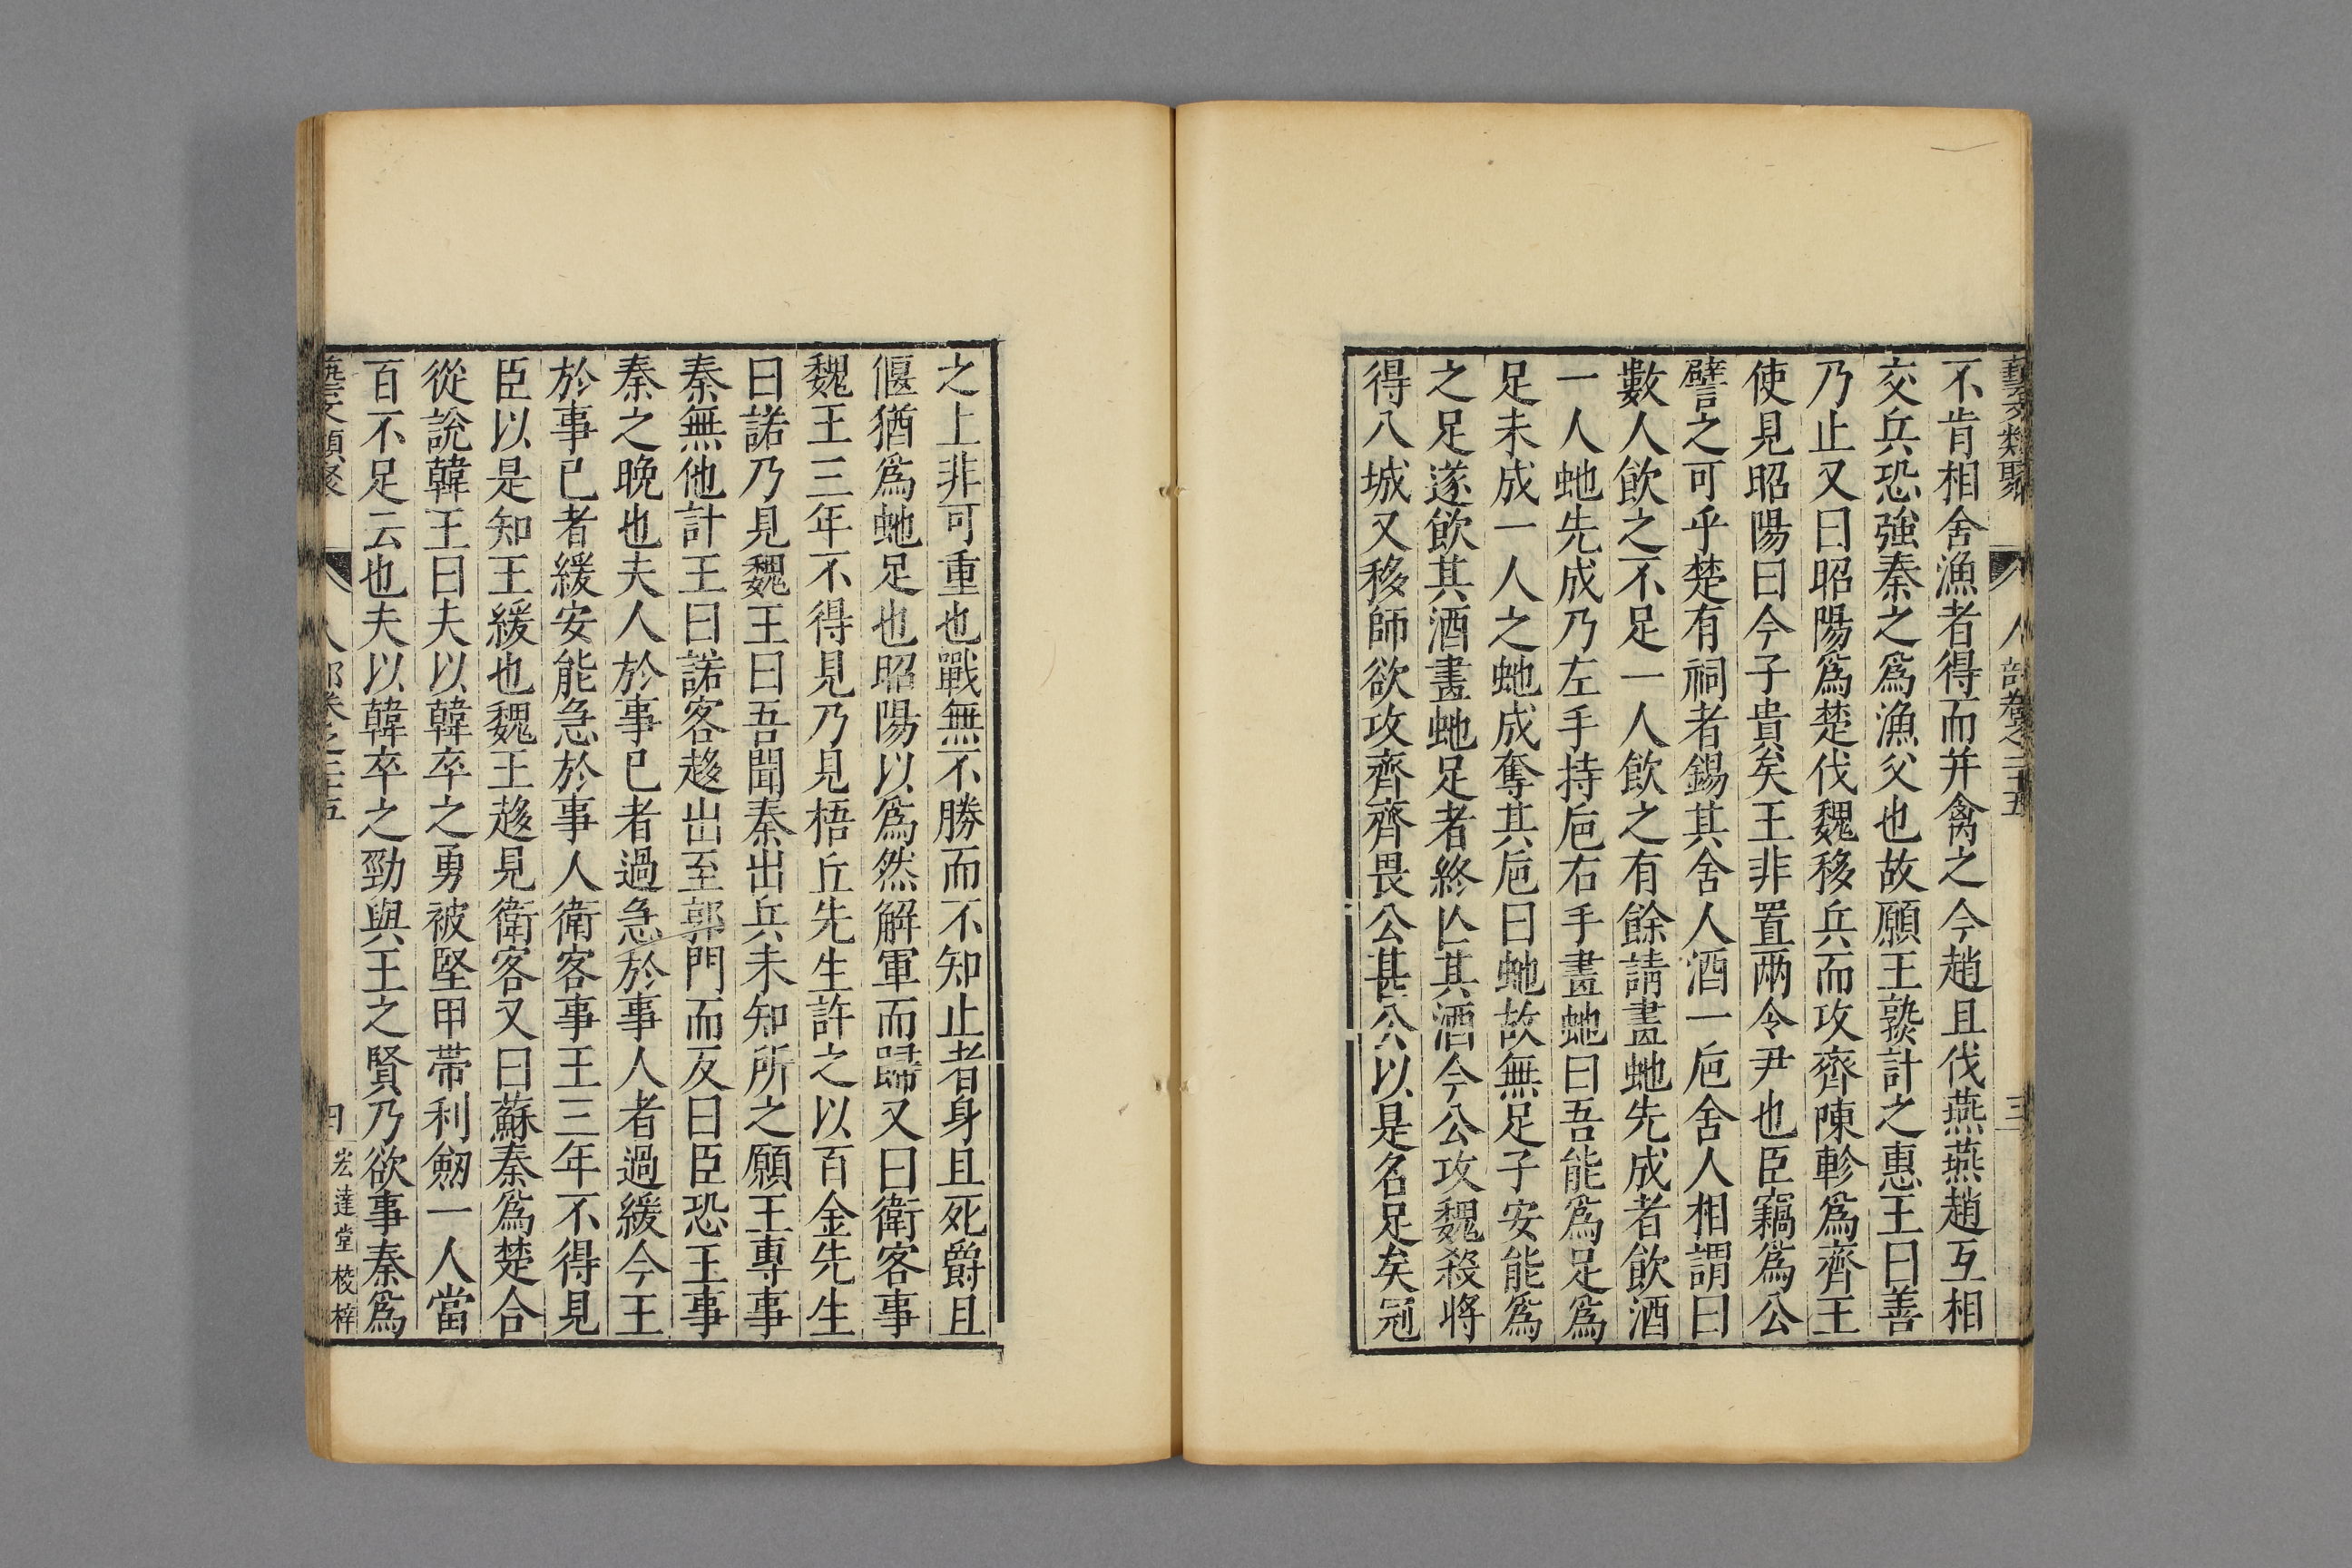 藝文類聚 人部卷之二十五 三
不肯相舍漁者得而并禽之今趙且伐燕燕趙互相
交兵恐強秦之爲漁父也故願王孰計之惠王曰善
乃止又曰昭陽爲楚伐魏移兵而攻齊陳軫爲齊王
使見昭陽曰今子貴矣王非置兩令尹也臣竊爲公
譬之可乎楚有祠者錫其舍人酒一卮舍人相謂曰
數人飲之不足一人飲之有餘請畫虵先成者飲酒
一人虵先成乃左手持卮右手畫虵曰吾能爲足爲
足未成一人之虵成奪其卮曰虵故無足子安能爲
之足遂飲其酒畫虵足者終亾其酒今公攻魏殺將
得八城又移師欲攻齊齊畏公甚公以是名足矣冠
之上非可重也戰無不勝而不知止者身且死爵且
偃猶爲虵足也昭陽以爲然解軍而歸又曰衛客事
魏王三年不得見乃見梧丘先生許之以百金先生
曰諾乃見魏王曰吾聞秦出兵未知所之願王專事
秦無他計王曰諾客趍出至郭門而反曰臣恐王事
秦之晚也夫人於事已者過急於事人者過緩今王
於事已者緩安能急於事人衛客事王三年不得見
臣以是知王緩也魏王趍見衛客又曰蘇秦爲楚合
從說韓王曰夫以韓卒之勇被堅甲帶利劒一人當
百不足云也夫以韓卒之勁與王之賢乃欲事秦爲
藝文類聚 人部卷之二十五 宏達堂校梓